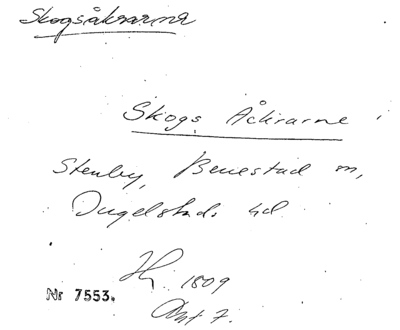 Skogsåkrarna
Skogs Åkrarne
Stenby, Benestad sn,
Ingelstads hd
Hy 1809
Akt 7.
Nr 7553.